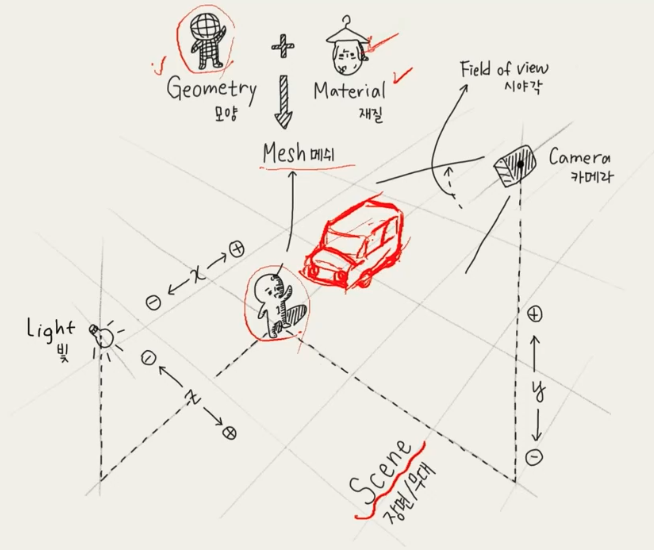 +
Geometry
모양
Material
재질
Mesh 메쉬
Field of view
시야각
Camera
카메라
- x +
Light
빛
- z +
+
y
-
Scene
장면/무대